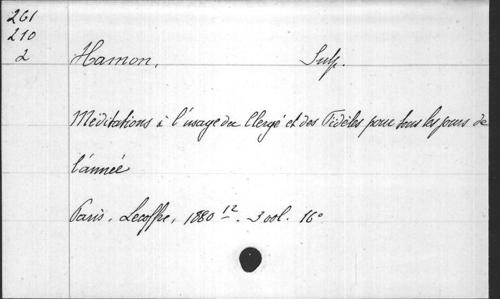 261
210
2
Hamon, Sulp.
Méditations à l'usage du Clergé et des Fidèles pour tous les jours de
l'année
Paris. Lecoffre, 1880 12. 3 vol. 16°